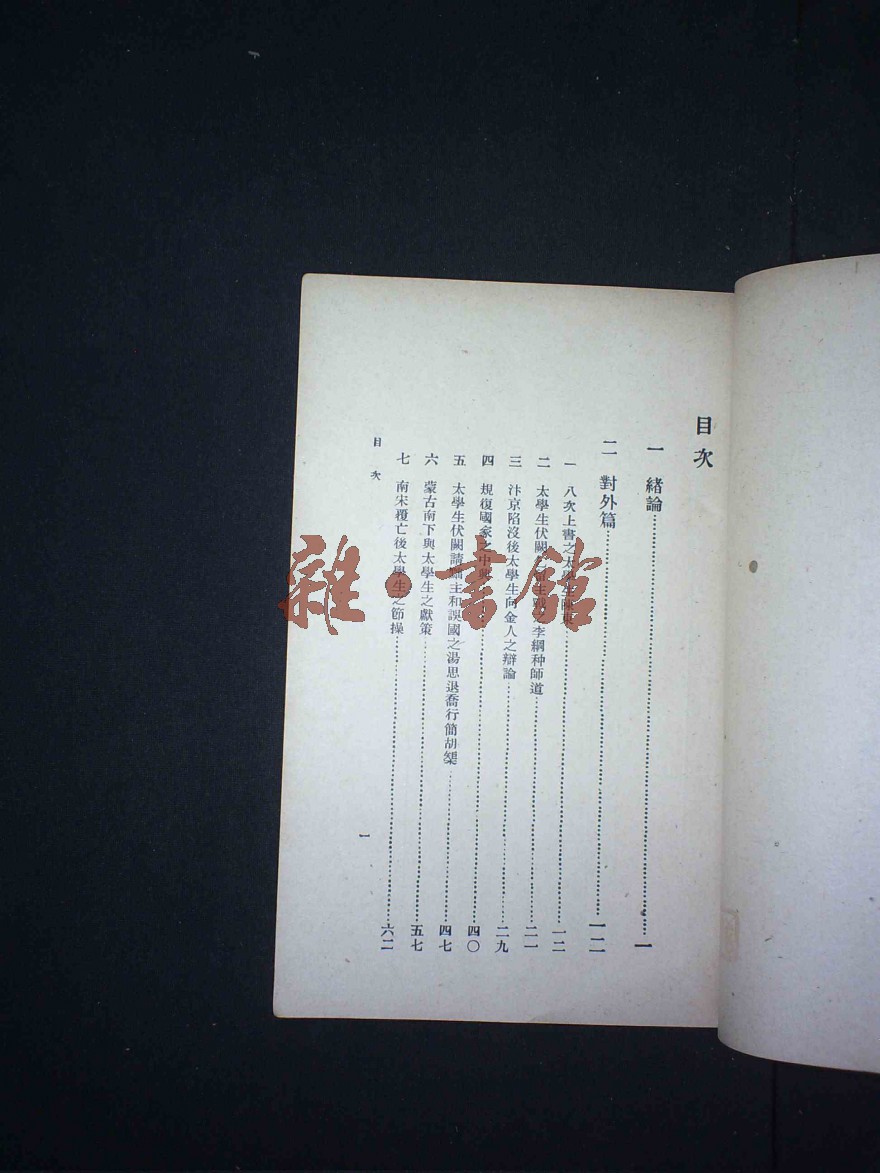 目次
一 緒論……一
二 對外篇……一二
一 八次上書之太學生陳東……一二
二 太學生伏闕 主戰之李綱种師道……二一
三 汴京陷沒後太學生向金人之辯論……二九
四 規復國家之中興……四〇
五 太學生伏闕請黜主和誤國之湯思退喬行簡胡榘……四七
六 蒙古南下與太學生之獻策……五七
七 南宋覆亡後太學生之節操……六二
目次
一
雜·書館